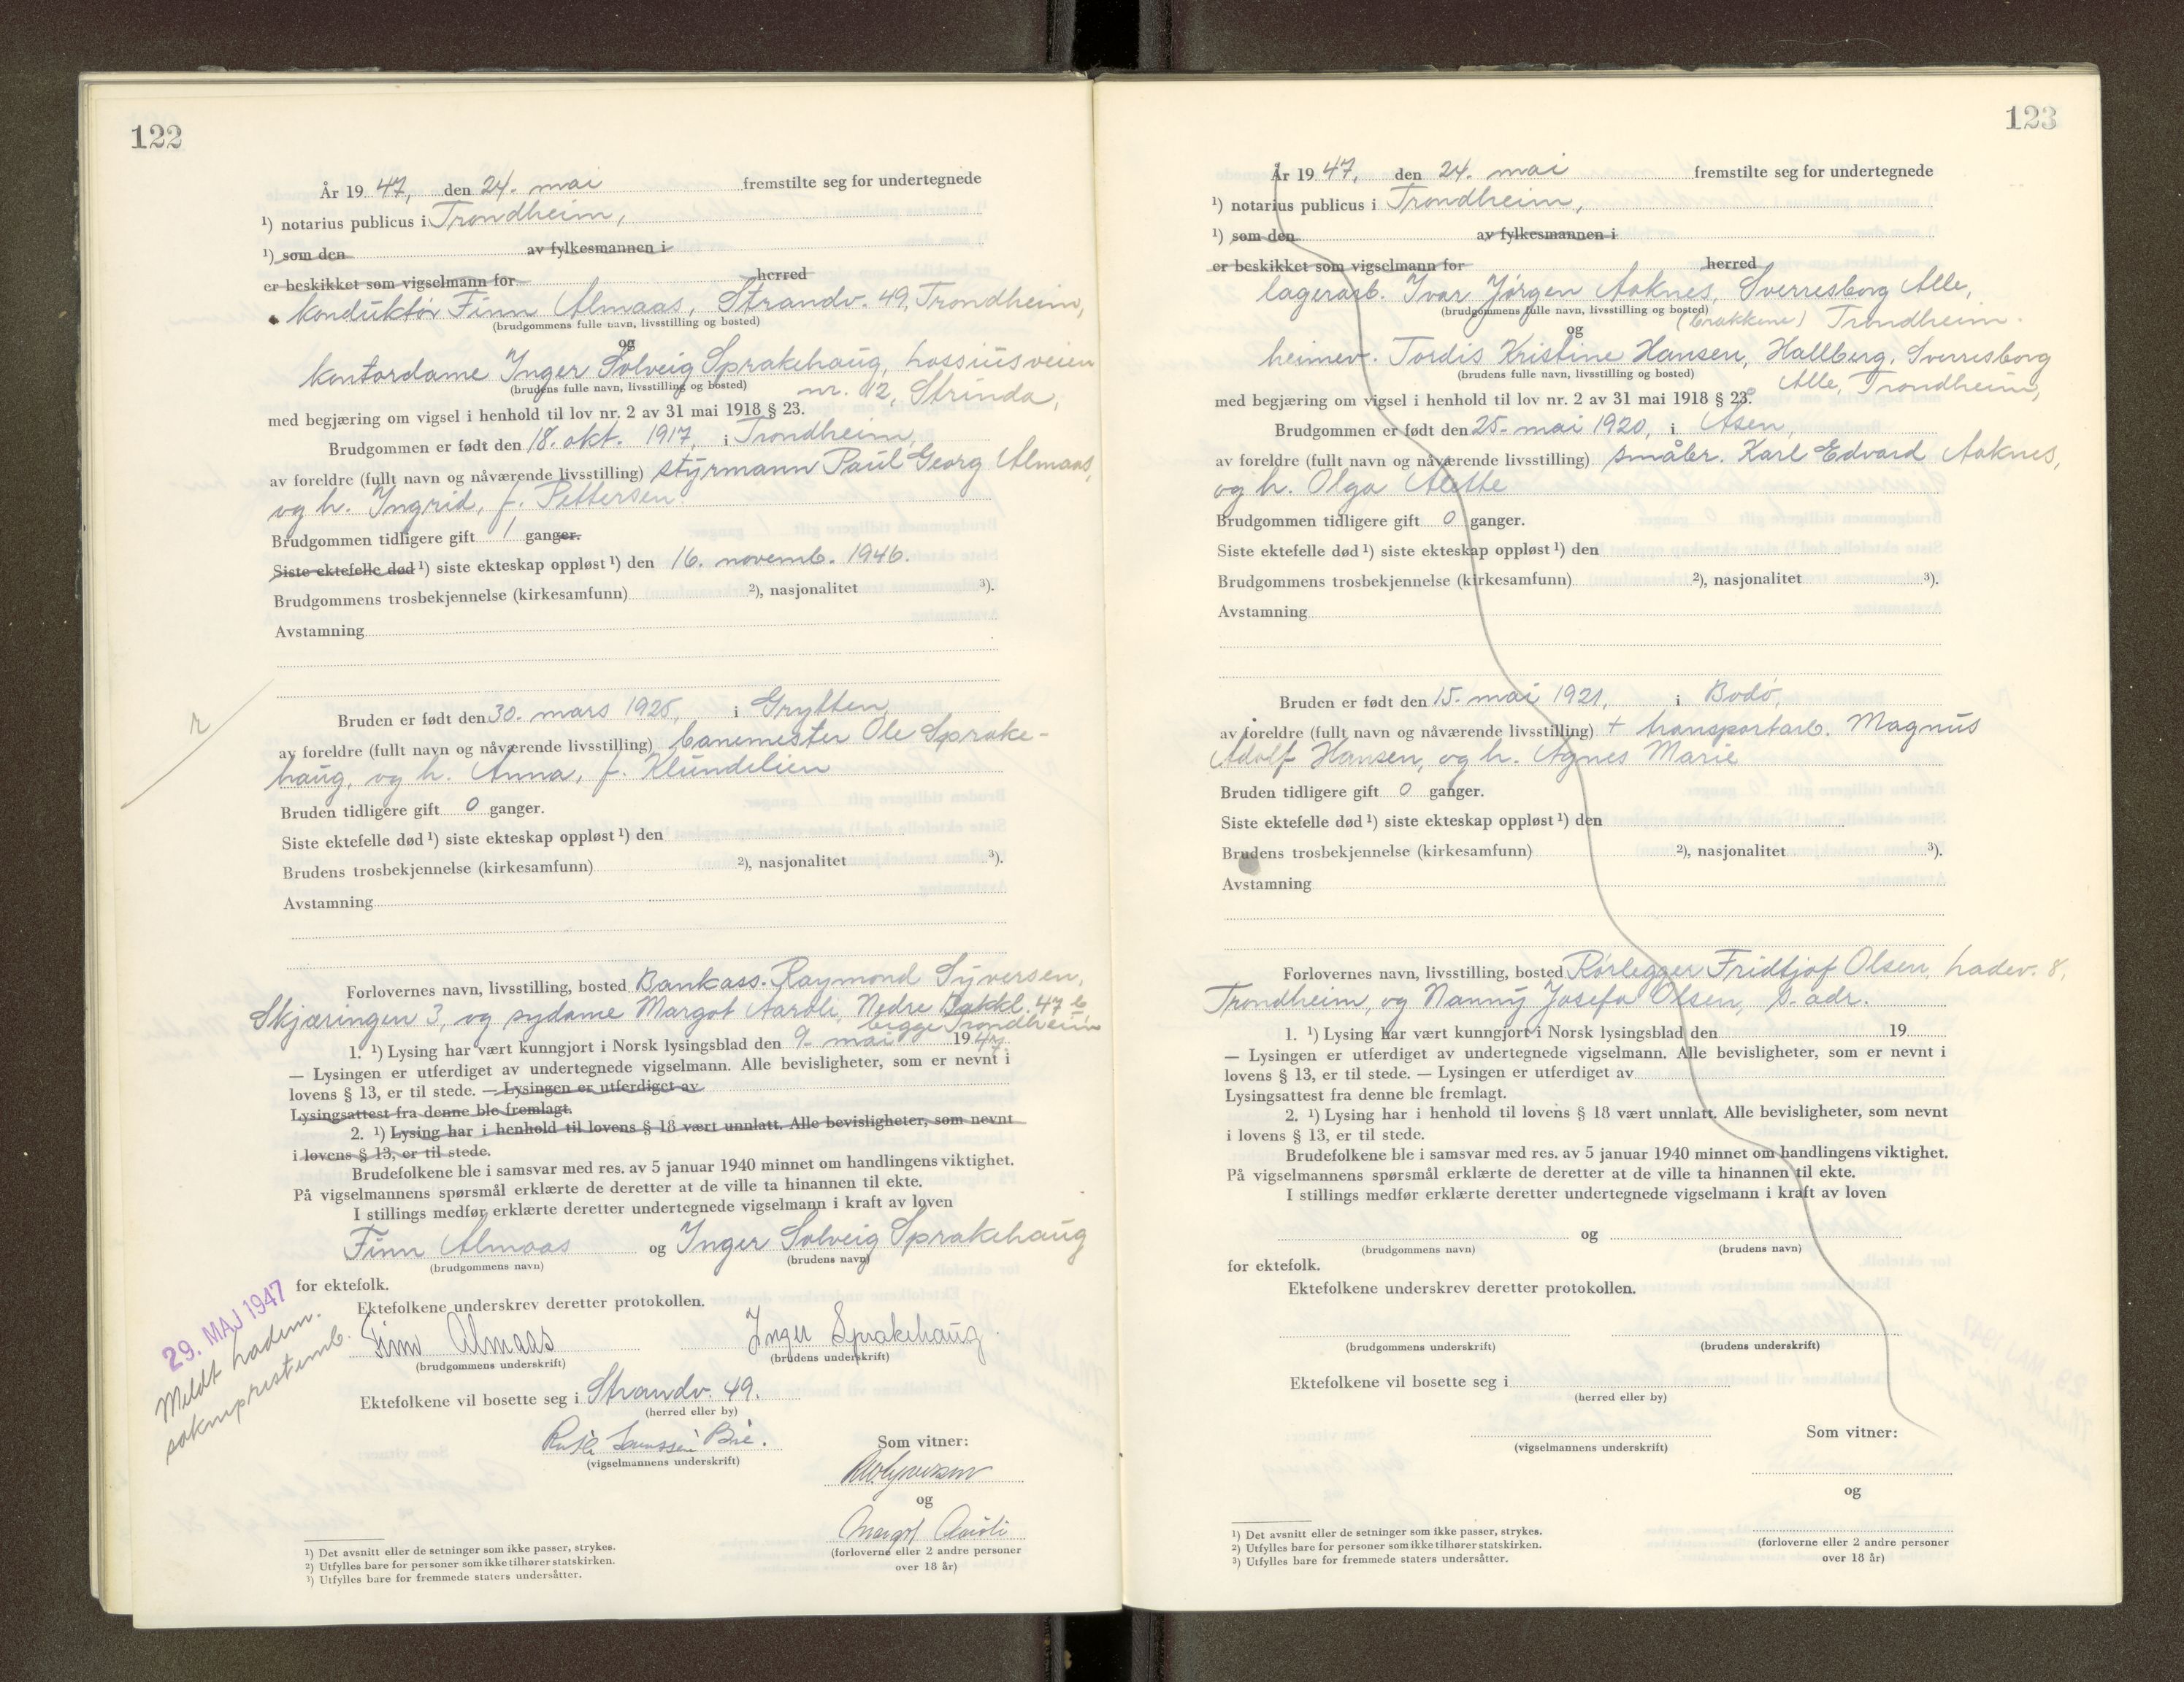 122
År 19 47, den 24. mai fremstilte seg for undertegnede
¹) notarius publicus i Trondheim,
¹) som den av fylkesmannen i
er beskikket som vigselmann for herred
konduktør Finn Almaas, Strandv. 49, Trondheim,
(brudgommens fulle navn, livsstilling og bosted)
og
kontordame Inger Solveig Sprakehaug, Lossiusveien
(brudens fulle navn, livsstilling og bosted) nr. 12, Strinda,
med begjæring om vigsel i henhold til lov nr. 2 av 31 mai 1918 § 23.
Brudgommen er født den 18. okt. 1917, i Trondheim,
av foreldre (fullt navn og nåværende livsstilling) styrmann Paul Georg Almaas,
og h. Ingrid, f. Pettersen.
Brudgommen tidligere gift 1 ganger.
Siste ektefelle død ¹) siste ekteskap oppløst ¹) den 16. novemb. 1946.
Brudgommens trosbekjennelse (kirkesamfunn) ²), nasjonalitet ³).
Avstamning
r
Bruden er født den 30. mars 1925, i Grytten,
av foreldre (fullt navn og nåværende livsstilling) banemester Ole Sprake-
haug, og h. Anna, f. Klundelien
Bruden tidligere gift 0 ganger.
Siste ektefelle død ¹) siste ekteskap oppløst ¹) den
Brudens trosbekjennelse (kirkesamfunn) ²), nasjonalitet ³).
Avstamning
Forlovernes navn, livsstilling, bosted Bankass. Raymond Syversen,
Skjæringen 3, og sydame Margot Aarøli, Nedre Bakkl. 47 b,
begge Trondheim
1. ¹) Lysing har vært kunngjort i Norsk lysingsblad den 9. mai 19 47.
— Lysingen er utferdiget av undertegnede vigselmann. Alle bevisligheter, som er nevnt i
lovens § 13, er til stede. — Lysingen er utferdiget av
Lysingsattest fra denne ble fremlagt.
2. ¹) Lysing har i henhold til lovens § 18 vært unnlatt. Alle bevisligheter, som nevnt
i lovens § 13, er til stede.
Brudefolkene ble i samsvar med res. av 5 januar 1940 minnet om handlingens viktighet.
På vigselmannens spørsmål erklærte de deretter at de ville ta hinannen til ekte.
I stillings medfør erklærte deretter undertegnede vigselmann i kraft av loven
Finn Almaas og Inger Solveig Sprakehaug
(brudgommens navn) (brudens navn)
for ektefolk.
29. MAJ 1947
Meldt Ladem.
soknprestemb.
Ektefolkene underskrev deretter protokollen.
Finn Almaas Inger Sprakehaug
(brudgommens underskrift) (brudens underskrift)
Ektefolkene vil bosette seg i Strandv. 49.
(herred eller by)
(vigselmannens underskrift)
Som vitner:
og
Margot Aarøli
(forloverne eller 2 andre personer
over 18 år)
¹) Det avsnitt eller de setninger som ikke passer, strykes.
²) Utfylles bare for personer som ikke tilhører statskirken.
³) Utfylles bare for fremmede staters undersåtter.
123
År 19 47, den 24. mai fremstilte seg for undertegnede
¹) notarius publicus i Trondheim,
¹) som den av fylkesmannen i
er beskikket som vigselmann for herred
lagerarb. Ivar Jørgen Aaknes, Sverresborg Alle,
(brudgommens fulle navn, livsstilling og bosted) (brakkene) Trondheim.
og
heimev. Tordis Kristine Hansen, Hallberg, Sverresborg
(brudens fulle navn, livsstilling og bosted) Alle, Trondheim,
med begjæring om vigsel i henhold til lov nr. 2 av 31 mai 1918 § 23.
Brudgommen er født den 25. mai 1920, i Åsen,
av foreldre (fullt navn og nåværende livsstilling) småbr. Karl Edvard Aaknes,
og h. Olga Alette
Brudgommen tidligere gift 0 ganger.
Siste ektefelle død ¹) siste ekteskap oppløst ¹) den
Brudgommens trosbekjennelse (kirkesamfunn) ²), nasjonalitet ³).
Avstamning
Bruden er født den 15. mai 1921, i Bodø,
av foreldre (fullt navn og nåværende livsstilling) + transportarb. Magnus
Adolf Hansen, og h. Agnes Marie
Bruden tidligere gift 0 ganger.
Siste ektefelle død ¹) siste ekteskap oppløst ¹) den
Brudens trosbekjennelse (kirkesamfunn) ²), nasjonalitet ³).
Avstamning
Forlovernes navn, livsstilling, bosted Rørlegger Fridtjof Olsen, Ladev. 8,
Trondheim, og Nanny Josefa Olsen, s. adr.
1. ¹) Lysing har vært kunngjort i Norsk lysingsblad den 19
— Lysingen er utferdiget av undertegnede vigselmann. Alle bevisligheter, som er nevnt i
lovens § 13, er til stede. — Lysingen er utferdiget av
Lysingsattest fra denne ble fremlagt.
2. ¹) Lysing har i henhold til lovens § 18 vært unnlatt. Alle bevisligheter, som nevnt
i lovens § 13, er til stede.
Brudefolkene ble i samsvar med res. av 5 januar 1940 minnet om handlingens viktighet.
På vigselmannens spørsmål erklærte de deretter at de ville ta hinannen til ekte.
I stillings medfør erklærte deretter undertegnede vigselmann i kraft av loven
og
(brudgommens navn) (brudens navn)
for ektefolk.
Ektefolkene underskrev deretter protokollen.
(brudgommens underskrift) (brudens underskrift)
Ektefolkene vil bosette seg i
(herred eller by)
(vigselmannens underskrift)
Som vitner:
og
(forloverne eller 2 andre personer
over 18 år)
¹) Det avsnitt eller de setninger som ikke passer, strykes.
²) Utfylles bare for personer som ikke tilhører statskirken.
³) Utfylles bare for fremmede staters undersåtter.